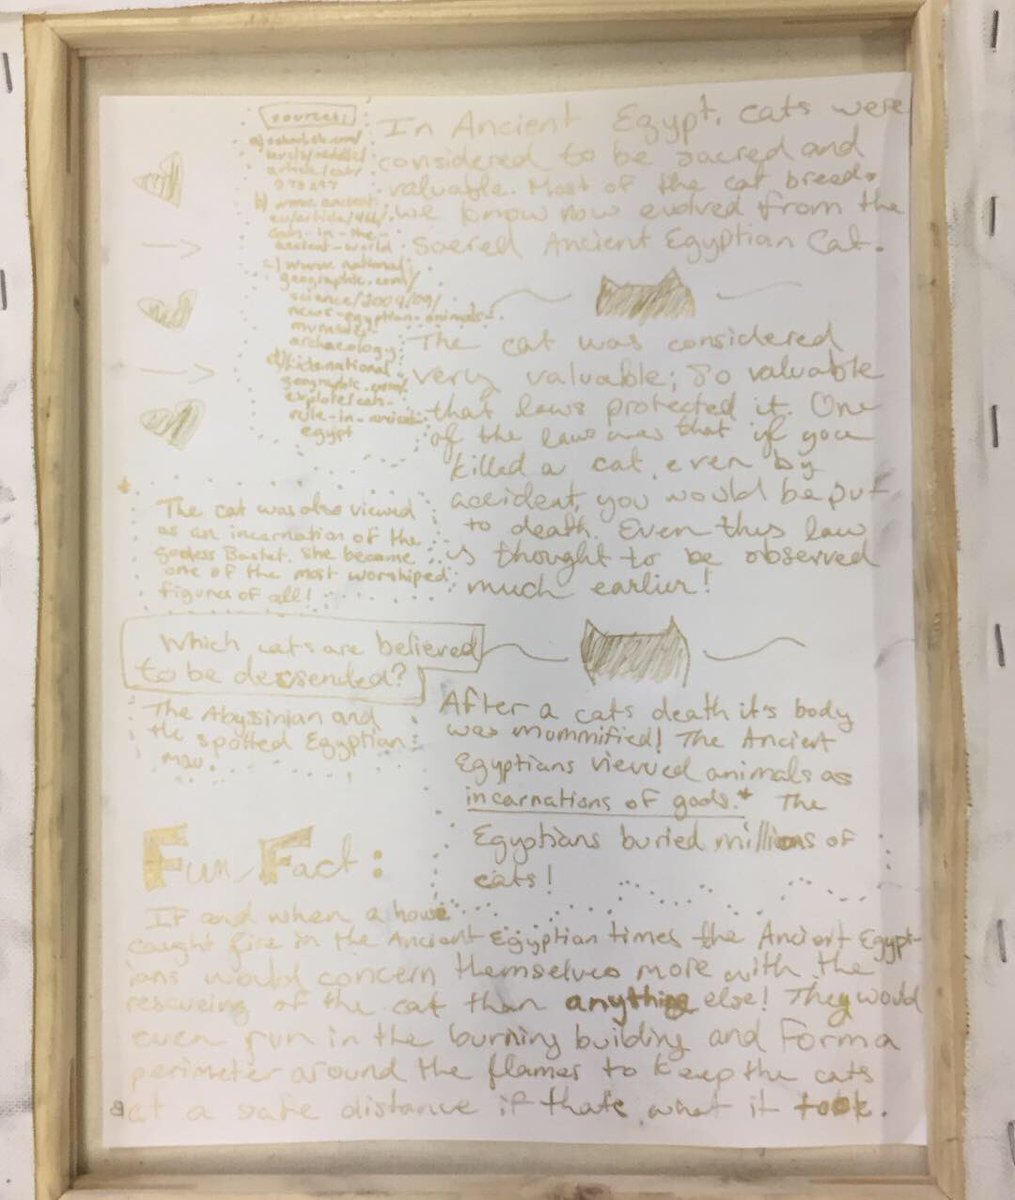 sources:
a)
article/cat/
b) www.ancient.
eu/article/466/
cats-in-the-
ancient-world
c) www.national
geographic.com/
science/2009/09/
news-egyptian-animals-
mummies-
archaeology
d) kids.national
geographic.com/
explore/cats-
rule-in-ancient-
egypt
In Ancient Egypt, cats were
considered to be sacred and
valuable. Most of the cat breeds
we know now evolved from the
sacred Ancient Egyptian Cat.
The cat was considered
very valuable; so valuable
that laws protected it. One
of the laws was that if you
killed a cat, even by
accident, you would be put
to death. Even this law
is thought to be observed
much earlier!
*
The cat was also viewed
as an incarnation of the
godess Bastet. She became
one of the most worshiped
figures of all!
Which cats are believed
to be descsended?
The Abyssinian and
the spotted Egyptian
mau.
After a cats death it's body
was mummified! The Ancient
Egyptians viewed animals as
incarnations of gods.* The
Egyptians buried millions of
cats!
Fun Fact:
If and when a house
caught fire in the Ancient Egyptian times the Ancient Egypt-
ians would concern themselves more with the
rescueing of the cat than anything else! They would
even run in the burning building and form a
perimeter around the flames to keep the cats
at a safe distance if thats what it took.